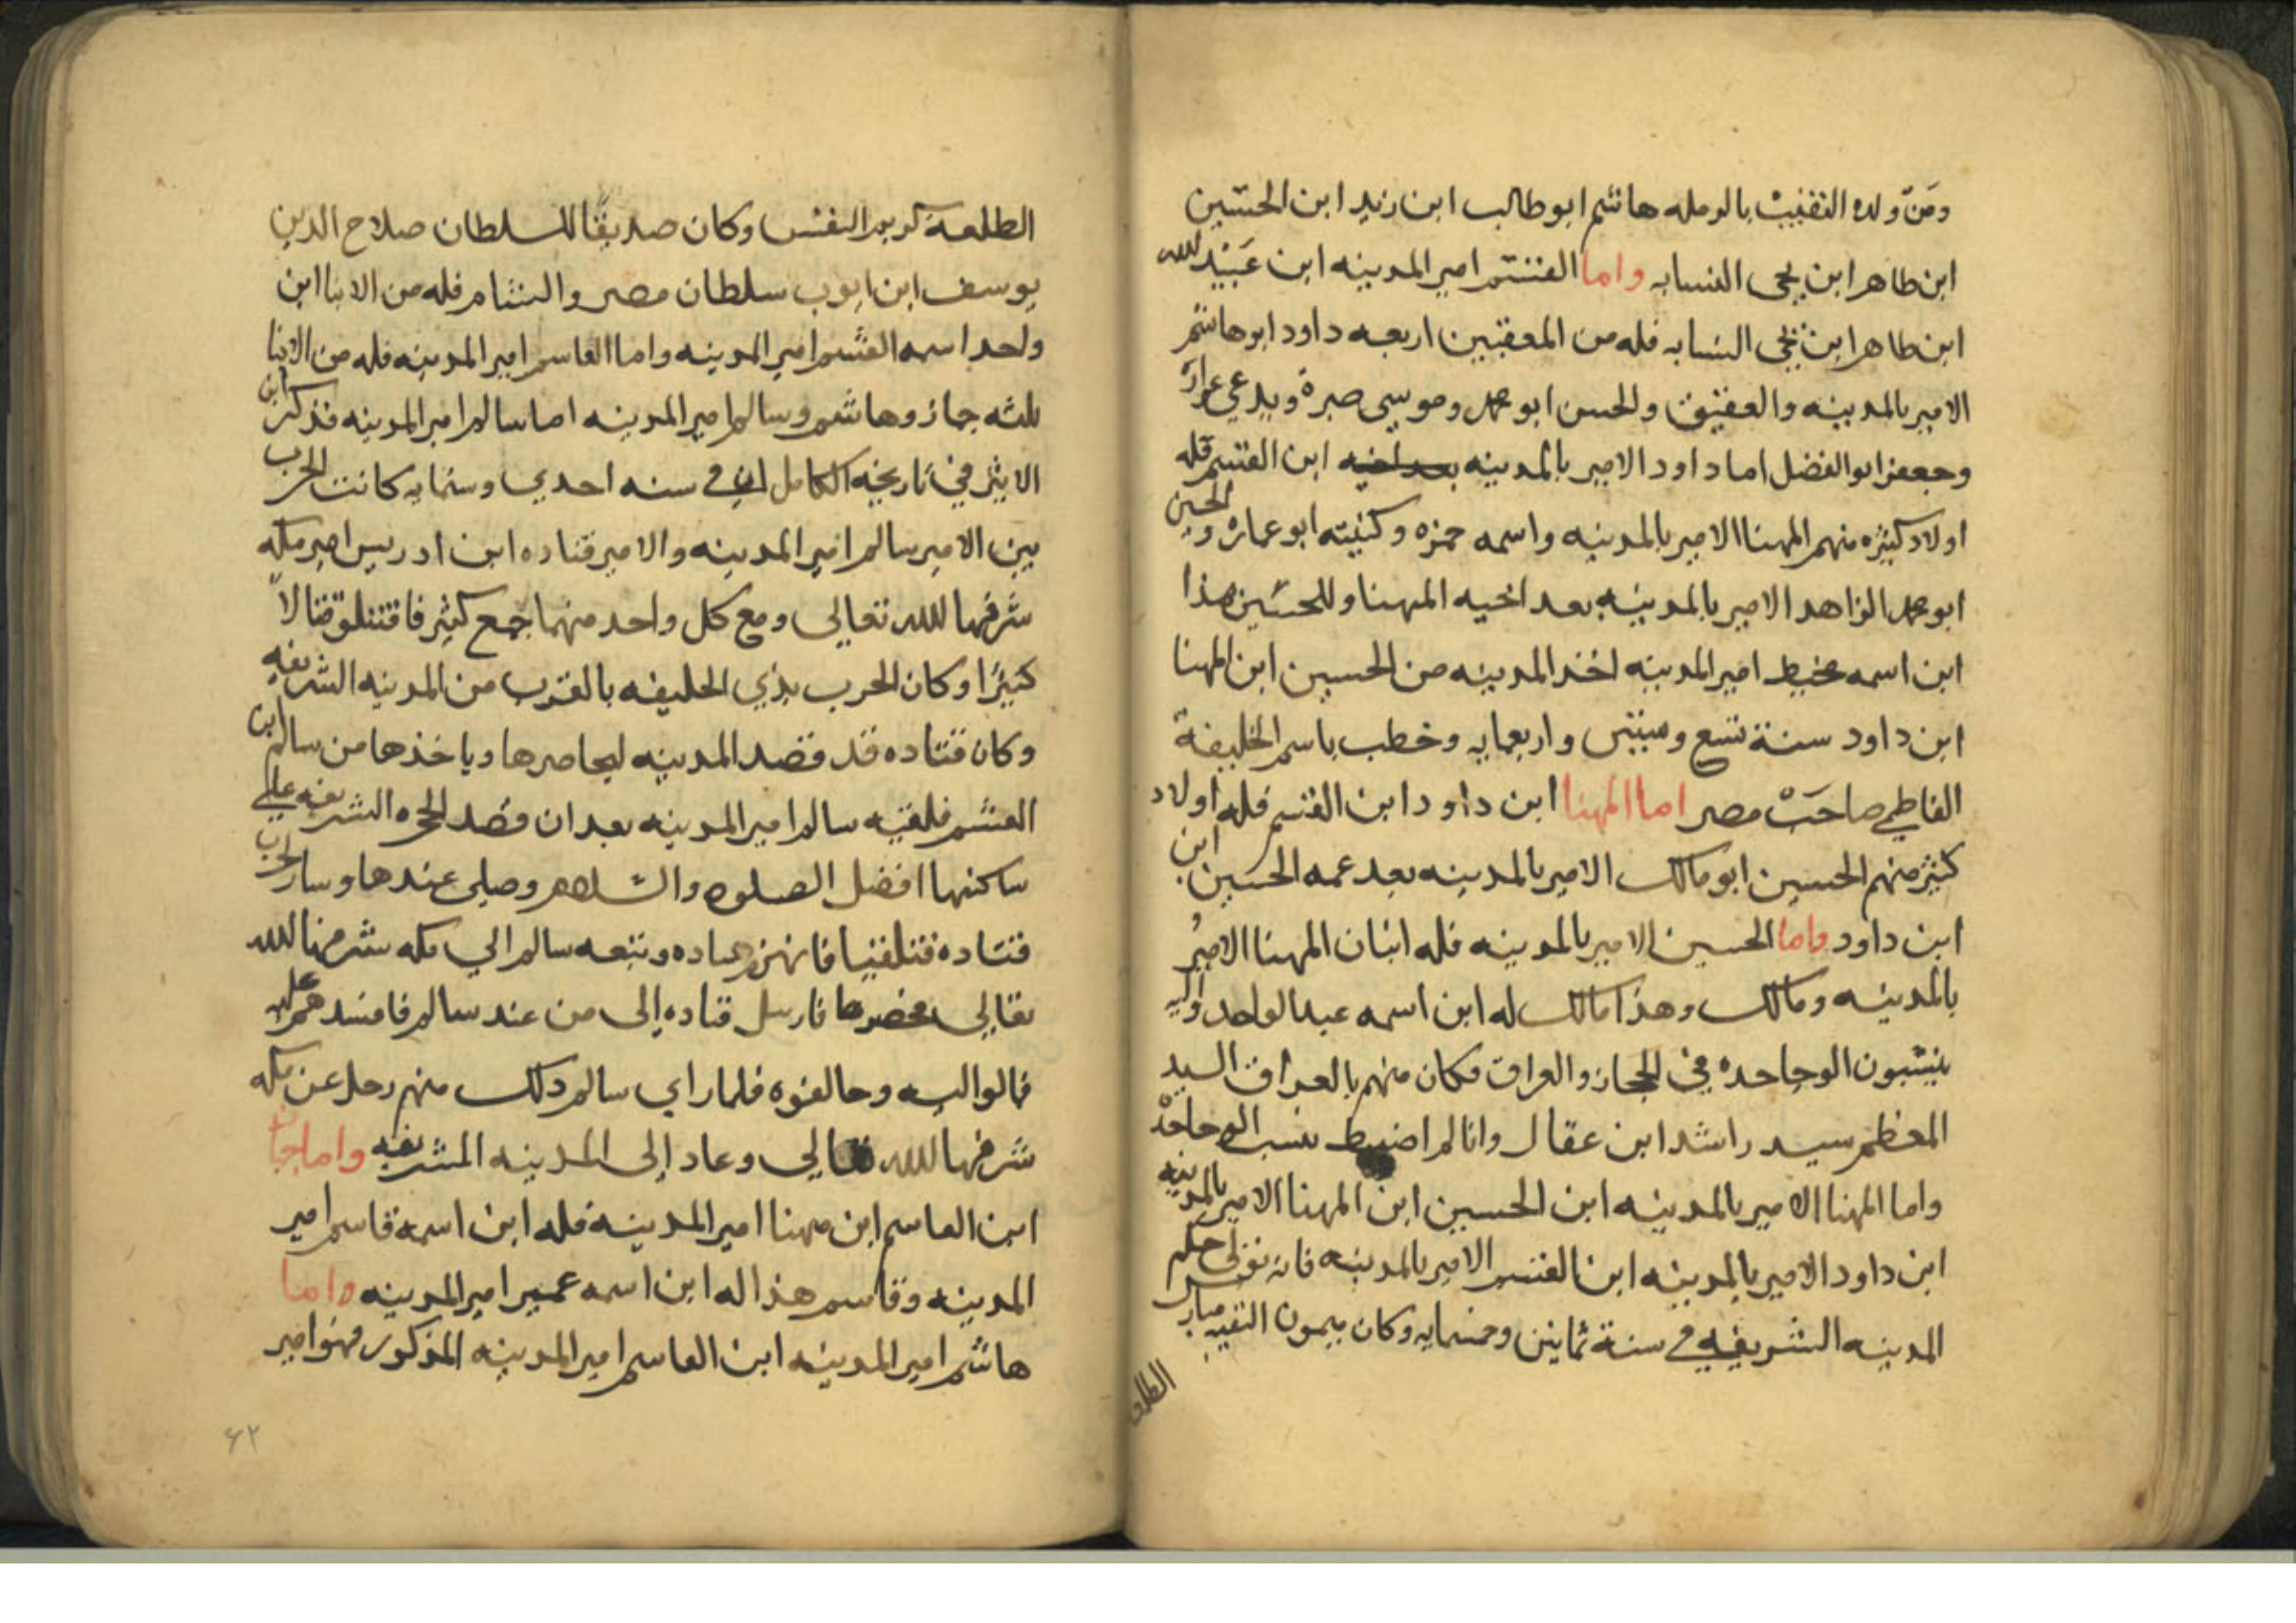 ومن ولده النقيب بالرمله هاشم ابو طالب ابن زيد ابن الحسين
ابن طاهر ابن يحى النسابه واما القسم امير المدينه ابن عبيد الله
ابن طاهر ابن يحى النسابه فله من المعقبين اربعه داود ابو هاشم
الامير بالمدينه والعقيق والحسن ابو محمد وموسى صبرة ويدعي عرارة
وجعفر ابو الفضل اما داود الامير بالمدينه ابن القسم فله
اولاد كثيره منهم المهنا الامير بالمدينه واسمه حمزه وكنيته ابو عماره والحسين
ابو محمد الزاهد الامير بالمدينه بعد اخيه المهنا وللحسين هذا
ابن اسمه مخيط امير المدينه اخذ المدينه من الحسين ابن المهنا
ابن داود سنة تسع وستين واربعمايه وخطب باسم الخليفة
الفاطمي صاحب مصر اما المهنا ابن داود ابن القسم فله اولاد
كثير منهم الحسين ابو مالك الامير بالمدينه بعد عمه الحسين ابن
ابن داود واما الحسين الامير بالمدينه فله ابنان المهنا الامير
بالمدينه ومالك وهذا مالك له ابن اسمه عبد الواحد واليه
ينتسبون الوحاحده في الحجاز والعراق فكان منهم بالعراق السيد
المعظم سيد راشد ابن عقال وانا لم اضبط نسب الوحاحدة
واما المهنا الامير بالمدينه ابن الحسين ابن المهنا الامير بالمدينه
ابن داود الامير بالمدينه ابن القسم الامير بالمدينه فانه تولى حكم
المدينه الشريفه في سنة ثمانين وخمسمايه وكان ميمون النقيبه
الطلعة
الطلعة كريم النفس وكان صديقًا للسلطان صلاح الدين
يوسف ابن ايوب سلطان مصر والشام فله من الابنا ابن
واحد اسمه القسم امير المدينه واما القاسم امير المدينه فله من الابنا
ثلثه جماز وهاشم وسالم امير المدينه اما سالم امير المدينه فذكر ابن
الاثير في تاريخه الكامل ان في سنه احدي وستمايه كانت الحرب
بين الامير سالم امير المدينه والامير قتاده ابن ادريس امير مكه
شرفها الله تعالى ومع كل واحد منهما جمع كثير فاقتتلو قتالاً
كثيرًا وكان الحرب بذي الحليفه بالقرب من المدينه الشريفه
وكان قتاده قد قصد المدينه ليحاصرها وياخذها من سالم ابن
القسم فلقيه سالم امير المدينه بعد ان قصد الحجره الشريفه على
ساكنها افضل الصلوه والسلام وصلى عندها وسار لحرب
قتاده فتلقيا فانهزم قتاده وتبعه سالم الي مكه شرفها الله
تعالى فحصره بها فارسل قتاده إلى من عند سالم فافسدهم عليه
فمالوا اليه وحالفوه فلما راي سالم ذلك منهم رحل عن مكه
شرفها الله تعالي وعاد إلى المدينه المشريفه واما جماز
ابن القاسم ابن مهنا امير المدينه فله ابن اسمه قاسم امير
المدينه وقاسم هذا له ابن اسمه عمير امير المدينه واما
هاشم امير المدينه ابن القاسم امير المدينه المذكور فهو امير
۶۲